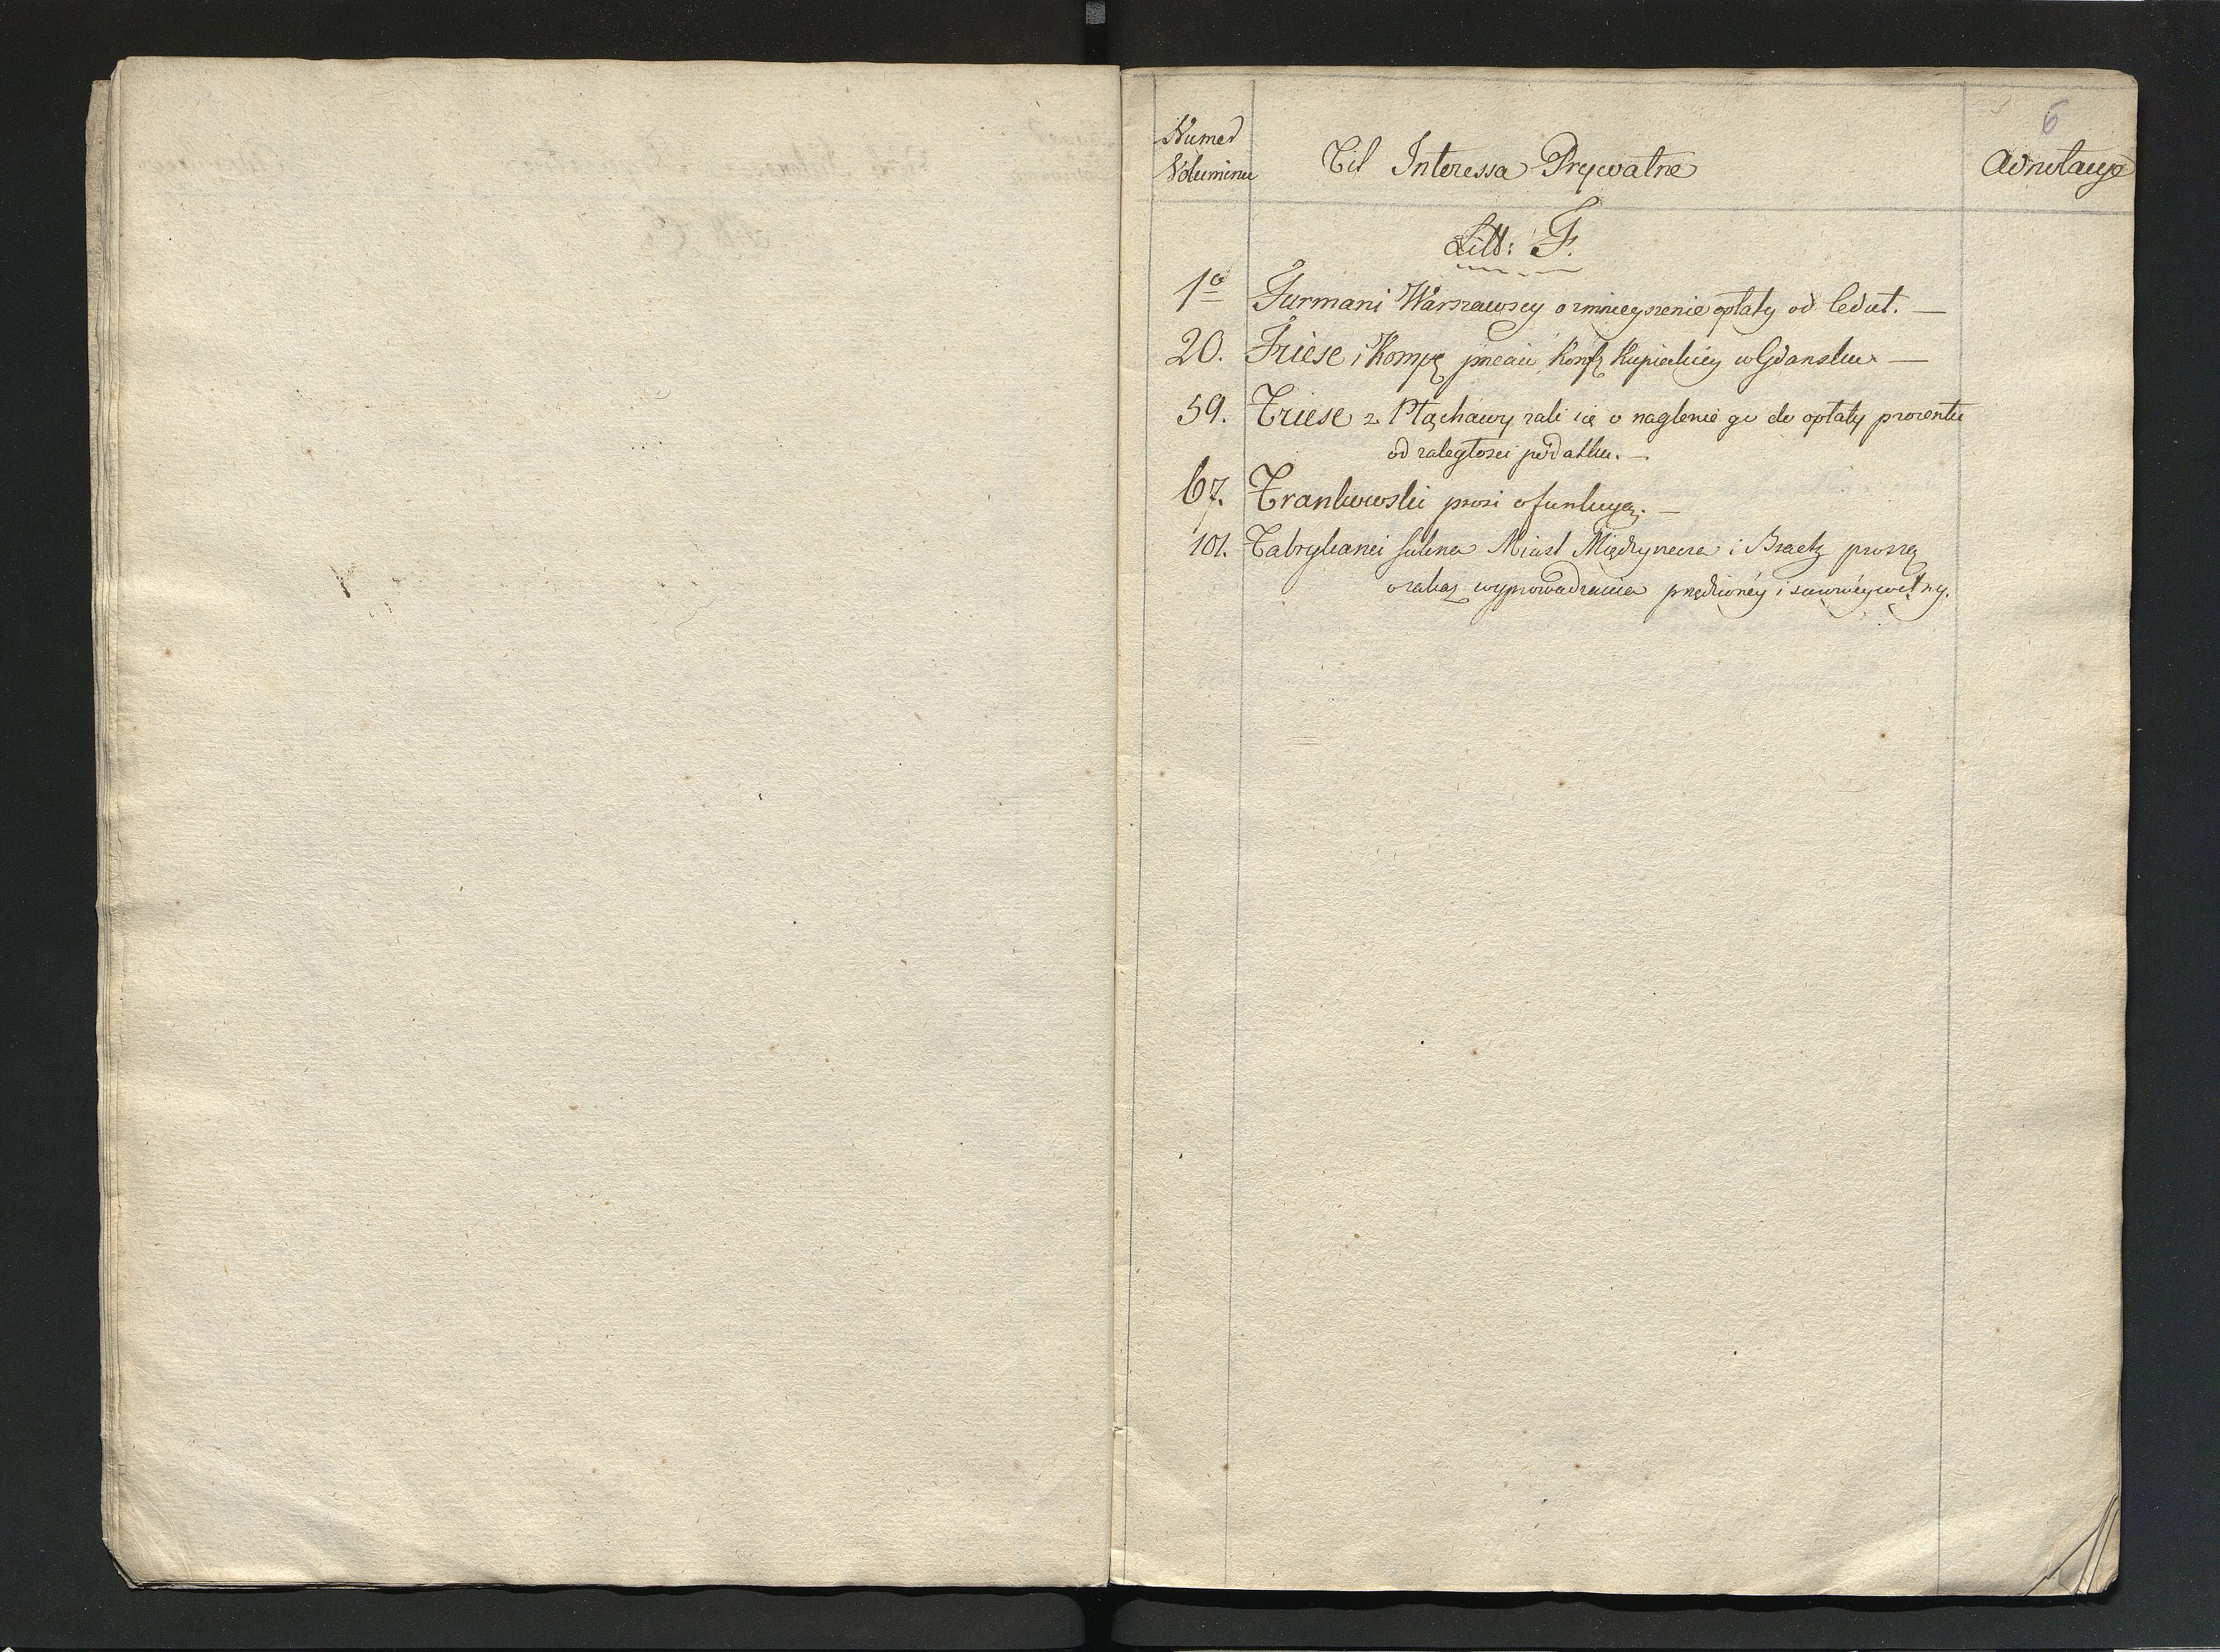 6
Numer
Voluminu
Tit Interessa Prywatne
Adnotacye
Litt: F.
1º Furmani Warszawscy o zmnieyszenie opłaty od leduł. —
20. Friese i Komp. Kupieckiey w Gdansku —
59. Friese z Płąchawy żali się o naglenie go do opłaty procentu
od zaległosci podatku. —
67. Frankowski prosi o funkcyą. —
101. Fabrykanci sukna Miast Międzyrzecza i Braetz proszą
o zakaz wyprowadzania przędzioney i surowéy wełny.